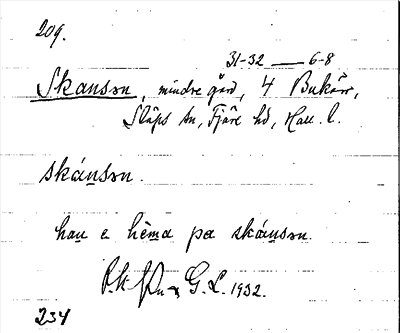 209.
31-32 — 6-8
Skansən, mindre gård, 4 Bukärr,
Släps sn, Fjäre hd, Hall. l.
skánsən.
han e hèma pa skánsən.
G. L. 1932.
234